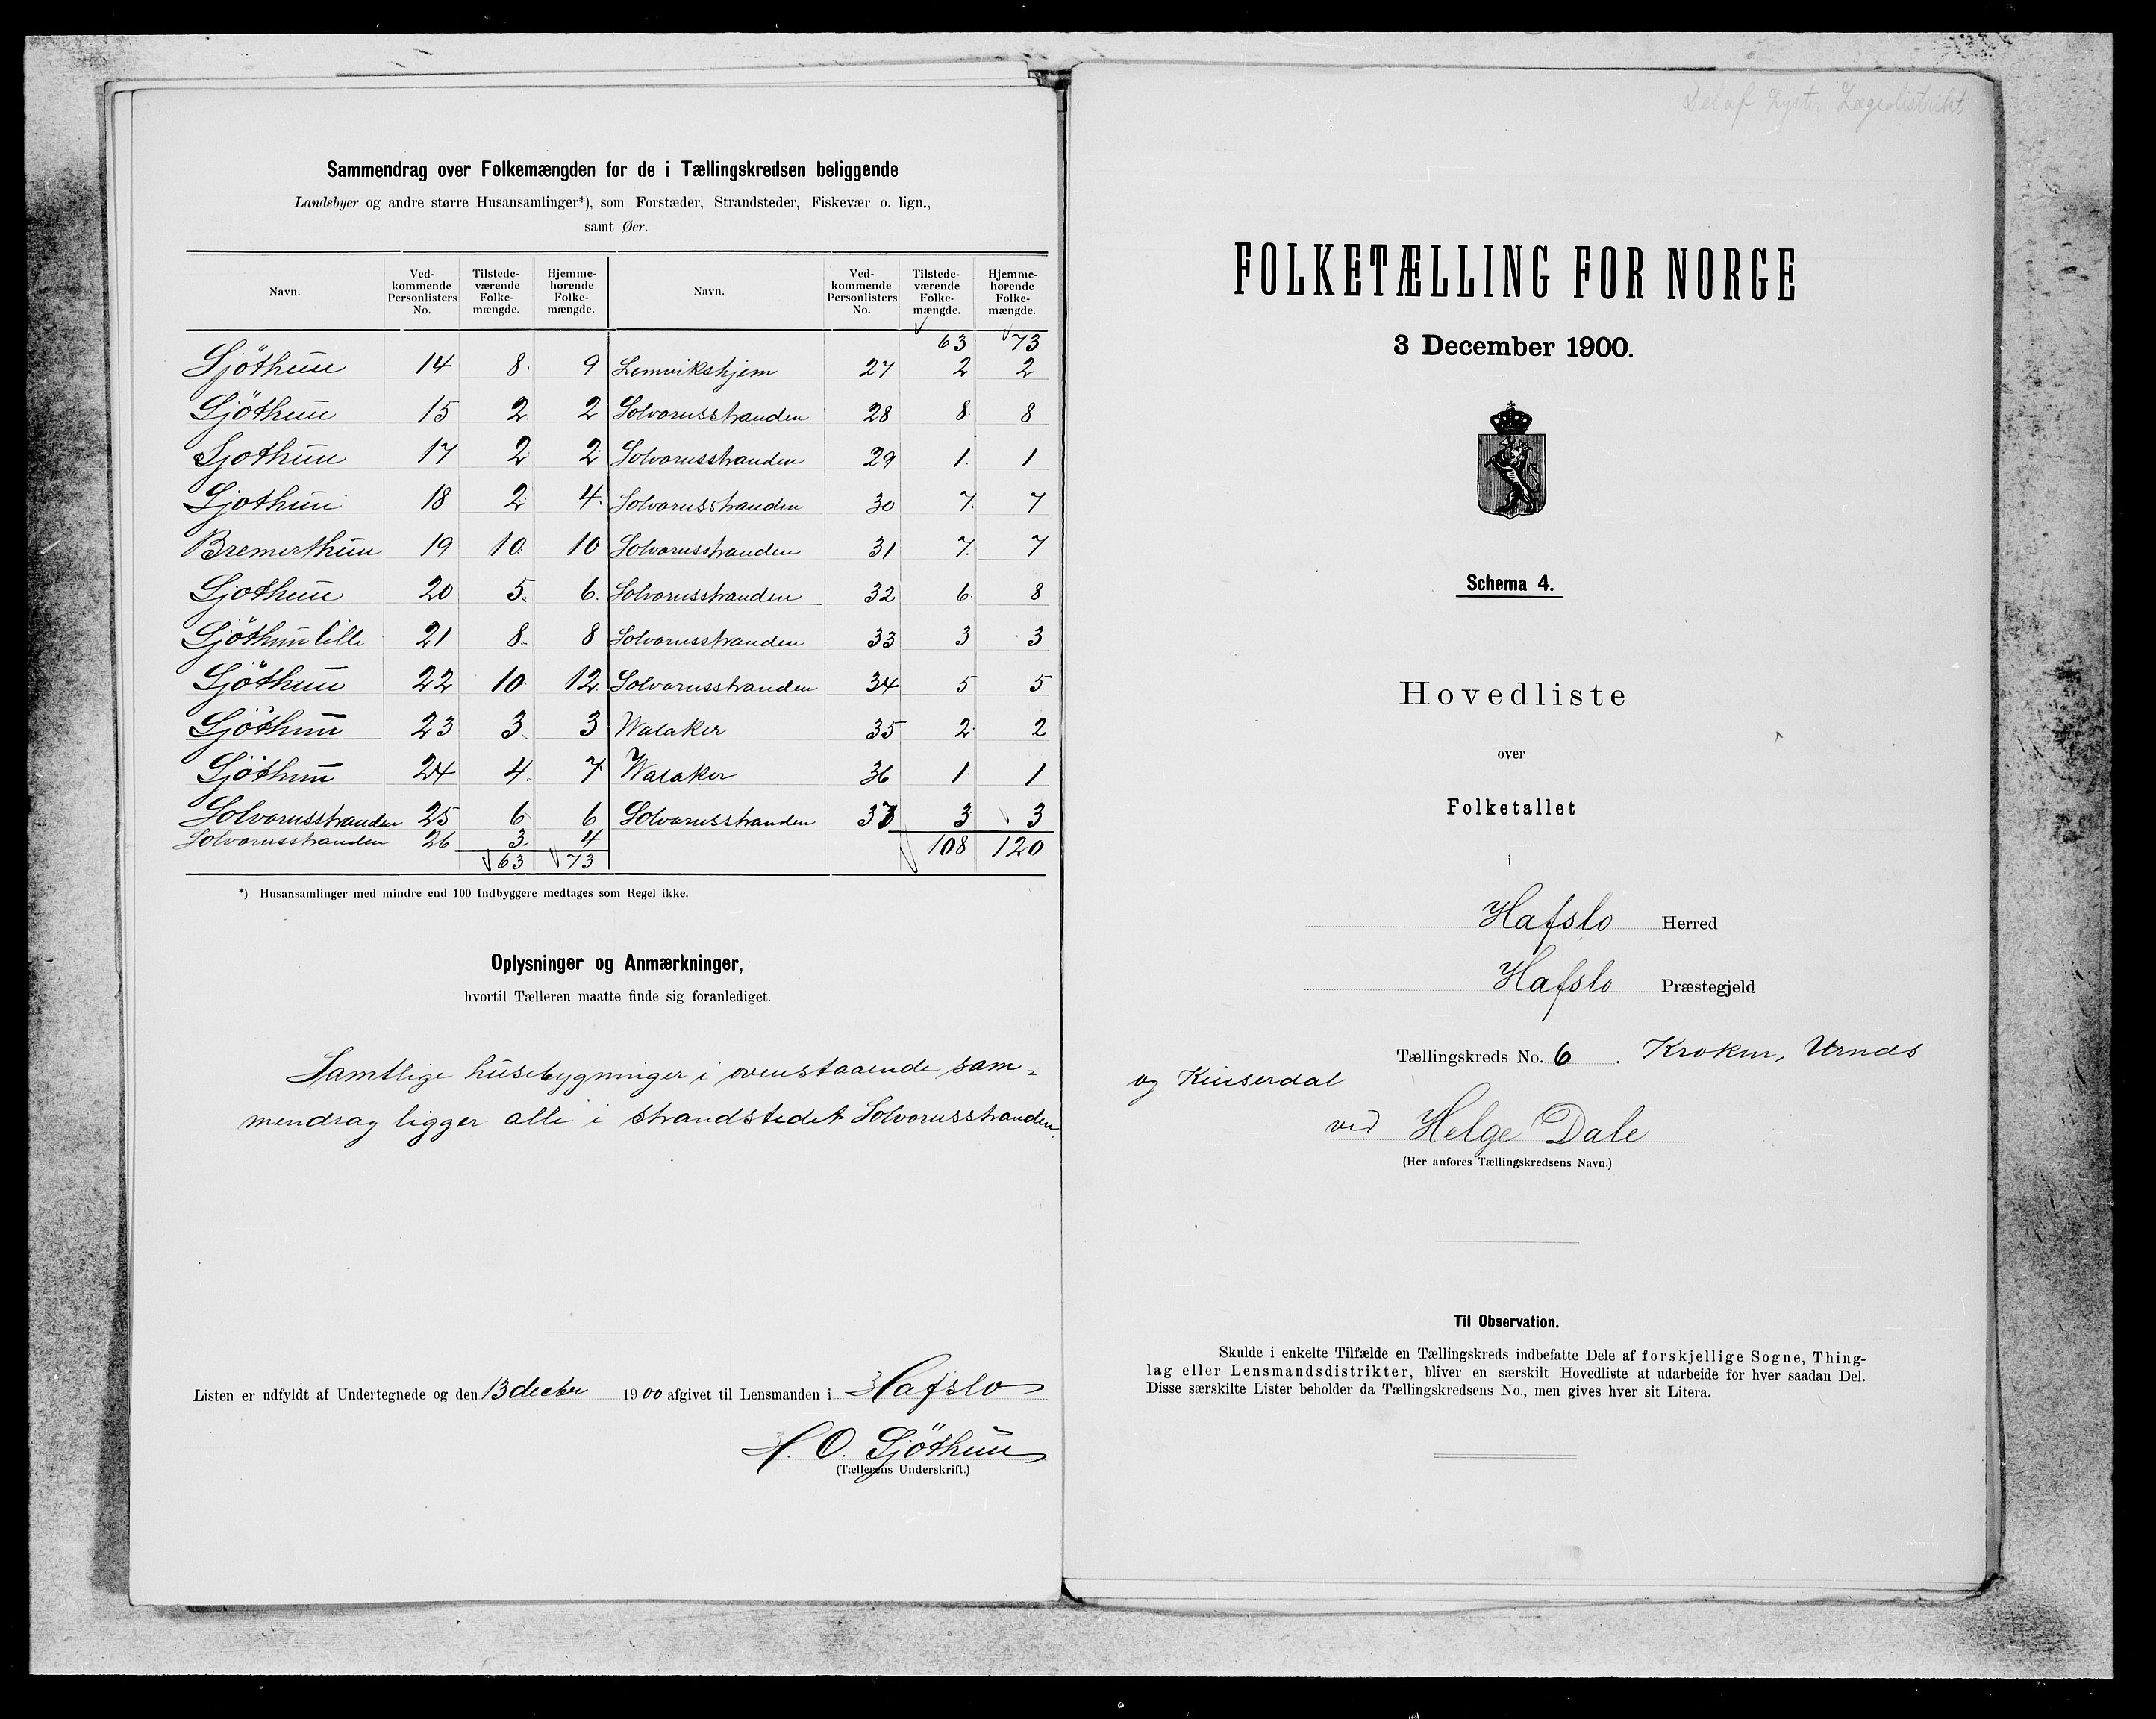 Sammendrag over Folkemængden for de i Tællingskredsen beliggende
Landsbyer og andre større Husansamlinger*), som Forstæder, Strandsteder, Fiskevær o. lign.,
samt Øer.
Navn. Ved-kommende Personlisters No. Tilstede-værende Folke-mængde. Hjemme-hørende Folke-mængde. Navn. Ved-kommende Personlisters No. Tilstede-værende Folke-mængde. Hjemme-hørende Folke-mængde.
63 73
Sjöthun 14 8 9 Lemvikshjem 27 2 2
Sjöthun 15 2 2 Solvornsstranden 28 8 8
Sjothun 17 2 2 Solvornsstranden 29 1 1
Sjothun 18 2 4 Solvornsstranden 30 7 7
Bremerthun 19 10 10 Solvornsstranden 31 7 7
Sjothun 20 5 6 Solvornsstranden 32 6 8
Sjöthun lille 21 8 8 Solvornsstranden 33 3 3
Sjöthun 22 10 12 Solvornsstranden 34 5 5
Sjöthun 23 3 3 Walaker 35 2 2
Sjöthun 24 4 7 Walaker 36 1 1
Solvornsstranden 25 6 6 Solvornsstranden 37 3 3
Solvornsstranden 26 3 4 108 120
63 73
*) Husansamlinger med mindre end 100 Indbyggere medtages som Regel ikke.
Oplysninger og Anmærkninger,
hvortil Tælleren maatte finde sig foranlediget.
Samtlige husebygninger i ovenstaaende sam-
mendrag ligger alle i strandstedet Solvornsstranden.
Listen er udfyldt af Undertegnede og den 13 decbr 1900 afgivet til Lensmanden i Hafslo
O. Sjöthun
(Tællerens Underskrift.)
Del af Lyster Lægedistrikt
FOLKETÆLLING FOR NORGE
3 December 1900.
Schema 4.
Hovedliste
over
Folketallet
i
Hafslo Herred
Hafslo Præstegjeld
Tællingskreds No. 6. Kroken, Urnæs
og Kinserdal
ved Helge Dale
(Her anføres Tællingskredsens Navn.)
Til Observation.
Skulde i enkelte Tilfælde en Tællingskreds indbefatte Dele af forskjellige Sogne, Thing-
lag eller Lensmandsdistrikter, bliver en særskilt Hovedliste at udarbeide for hver saadan Del.
Disse særskilte Lister beholder da Tællingskredsens No., men gives hver sit Litera.